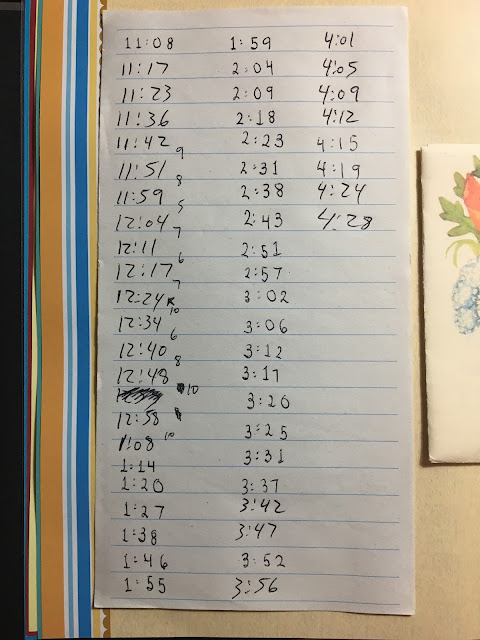 11:08
11:17
11:23
11:36
11:42
9
11:51
8
11:59
5
12:04
7
12:11
6
12:17
7
12:24
10
12:34
6
12:40
8
12:48
10
12:58
1:08
10
1:14
1:20
1:27
1:38
1:46
1:55
1:59
2:04
2:09
2:18
2:23
2:31
2:38
2:43
2:51
2:57
3:02
3:06
3:12
3:17
3:20
3:25
3:31
3:37
3:42
3:47
3:52
3:56
4:01
4:05
4:09
4:12
4:15
4:19
4:24
4:28